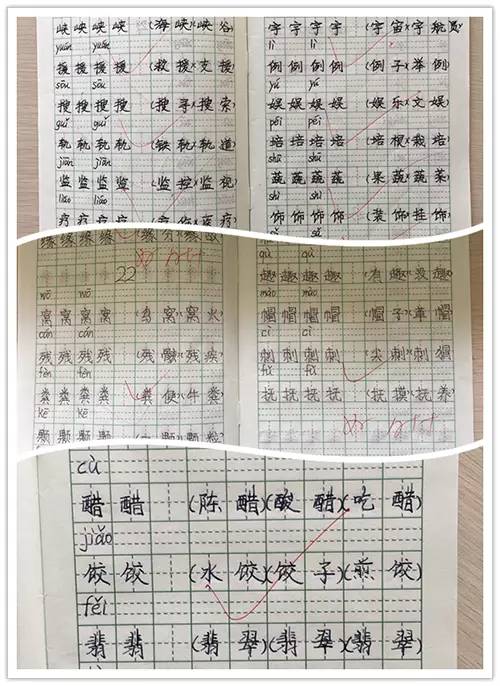 峡 峡 峡 峡 (海 峡)(峡 谷)
yuán yuán
援 援 援 援 (救 援)(支 援)
sōu sōu
搜 搜 搜 搜 (搜 寻)(搜 索)
guǐ guǐ
轨 轨 轨 轨 (铁 轨)(轨 道)
jiān jiān
监 监 监 监 (监 控)(监 视)
liáo liáo
疗 疗 疗 疗
宇 宇 宇 宇 (宇 宙)(宇 航 员)
lì lì
例 例 例 例 (例 子)(举 例)
yú yú
娱 娱 娱 娱 (娱 乐)(文 娱)
péi péi
培 培 培 培 (培 根)(栽 培)
shū shū
蔬 蔬 蔬 蔬 (果 蔬)(蔬 菜)
shì shì
饰 饰 饰 饰 (装 饰)(挂 饰)
缘 缘 缘 缘
22
wō wō
窝 窝 窝 (鸟 窝)(窝 火)
cán cán
残 残 残 (残 骸)(残 疾)
fèn fèn
粪 粪 粪 (粪 便)(牛 粪)
kē kē
颗 颗 颗
qù qù
趣 趣 趣 (有 趣)(没 趣)
mào mào
帽 帽 帽 帽 (帽 子)(草 帽)
cì cì
刺 刺 刺 刺 (尖 刺)(刺 猬)
fǔ fǔ
抚 抚 抚 抚 (抚 摸)(抚 养)
cù
醋 醋 (陈 醋)(酸 醋)(吃 醋)
jiǎo
饺 饺 (水 饺)(饺 子)(煎 饺)
fěi
翡 翡 (翡 翠)(翡 翠)(翡 翠)